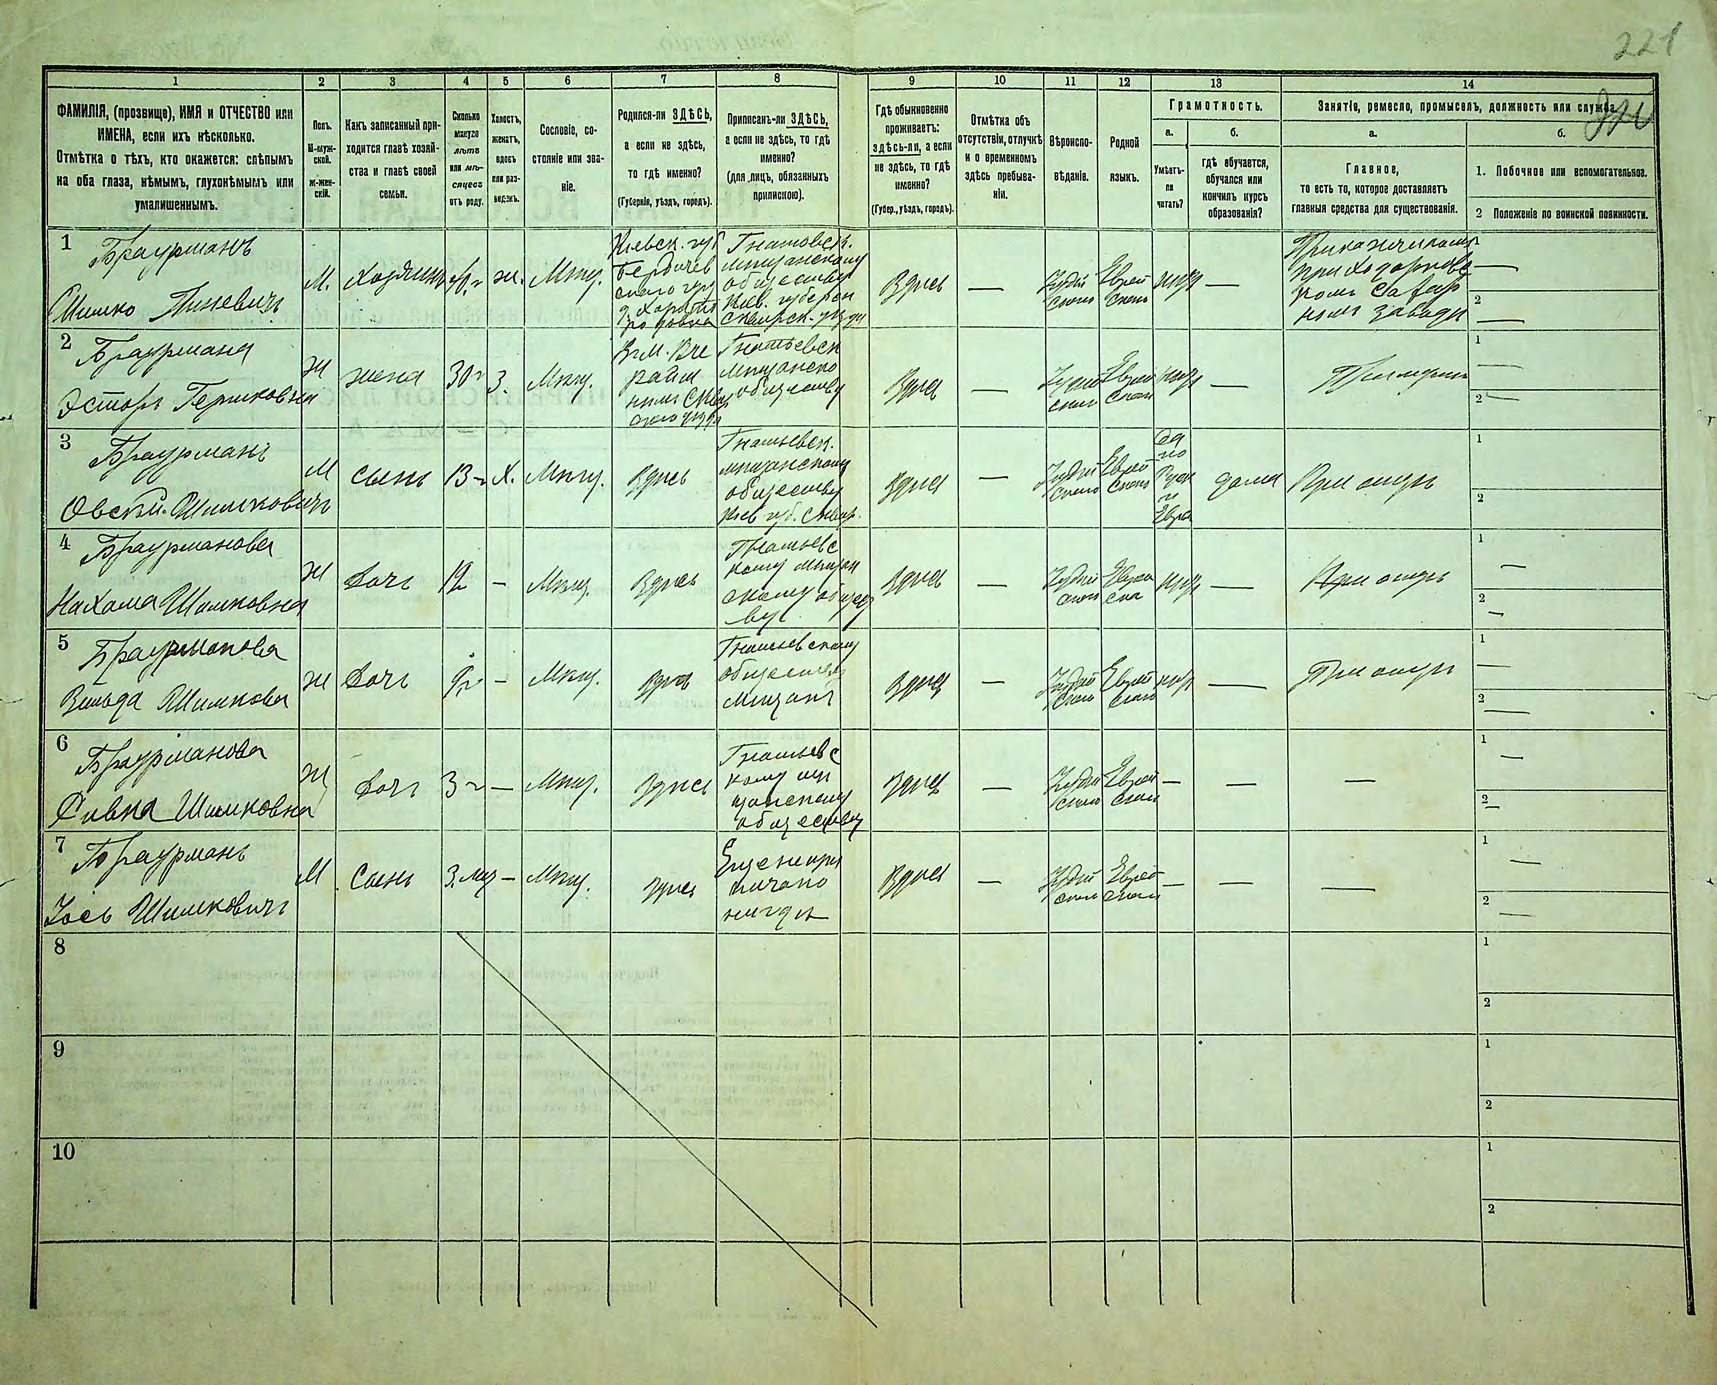 221
1
2
3
4
5
6
7
8
9
10
11
12
13
14
ФАМИЛІЯ, (прозвище), ИМЯ и ОТЧЕСТВО или
ИМЕНА, если ихъ нѣсколько.
Отмѣтка о тѣхъ, кто окажется: слѣпымъ
на оба глаза, нѣмымъ, глухонѣмымъ или
умалишеннымъ.
Полъ.
М-муж-
ской.
Ж-жен-
скій.
Какъ записанный при-
ходится главѣ хозяй-
ства и главѣ своей
семьи.
Сколько
минуло
лѣтъ
или мѣ-
сяцевъ
отъ роду.
Холостъ,
женатъ,
вдовъ
или раз-
веденъ.
Сословіе, со-
стояніе или зва-
ніе.
Родился-ли ЗДѢСЬ,
а если не здѣсь,
то гдѣ именно?
(Губернія, уѣздъ, городъ).
Приписанъ-ли ЗДѢСЬ,
а если не здѣсь, то гдѣ
именно?
(для лицъ, обязанныхъ
припискою).
Гдѣ обыкновенно
проживаетъ:
здѣсь-ли, а если
не здѣсь, то гдѣ
именно?
(Губер., уѣздъ, городъ).
Отмѣтка объ
отсутствіи, отлучкѣ
и о временномъ
здѣсь пребыва-
ніи.
Вѣроиспо-
вѣданіе.
Родной
языкъ.
Грамотность.
а.
Умѣетъ-
ли
читать?
б.
гдѣ обучается,
обучался или
кончилъ курсъ
образованія?
Занятіе, ремесло, промыселъ, должность или служба.
а.
Главное,
то есть то, которое доставляетъ
главныя средства для существованія.
б.
1. Побочное или вспомогательное.
2 Положеніе по воинской повинности.
1
Браурманъ
Шимко Пиневичъ
М.
Хозяинъ
ж.
Мѣщ.
Кіевск. губ
Бердичев
скаго
Мѣщанскому
обществу
Кіев. губерн
Сквирск. уѣзда
Здѣсь
—
Іудей
ское
Еврей
ской
нѣтъ
—
Прикащикомъ
номъ заводѣ
—
2
—
2
Браурмана
Эстеръ Гершковна
Ж
жена
30
З.
Мѣщ.
Мѣщанско
обществу
Здѣсь
—
Іудей
ское
Еврей
ской
нѣтъ
—
При мужѣ
1
—
2 —
3
Браурманъ
Шимковичъ
М
сынъ
13
Х.
Мѣщ.
Здѣсь
Мѣщанскому
обществу
Кіев губ. Сквир.
Здѣсь
—
Іудей
ское
Еврей
ской
да
по
Русск
и
Евре
дома
При отцѣ
1
2
4
Браурманова
Нахама Шимковна
Ж
Дочь
12
—
Мѣщ.
Здѣсь
кому мѣщан
скому общест
ву
Здѣсь
—
Іудей
ское
нѣтъ
—
При отцѣ
1
—
2
—
5
Браурманова
Шимкова
Ж
Дочь
—
Мѣщ.
Здѣсь
обществу
Мѣщанъ
Здѣсь
—
Іудей
ское
Еврей
ской
нѣтъ
—
При отцѣ
1
—
2
—
6
Браурманова
Сивка Шимковна
Ж
Дочь
3
—
Мѣщ.
Здѣсь
кому мѣ
щанскому
обществу
Здѣсь
—
Іудей
ское
Еврей
ской
—
—
—
1
—
2
—
7
Браурманъ
Іось Шимковичъ
М
Сынъ
3. мѣ
—
Мѣщ.
Здѣсь
Еще не при
писано
нигдѣ
Здѣсь
—
Іудей
ское
Еврей
ской
—
—
—
1
—
2
—
8
1
2
9
1
2
10
1
2